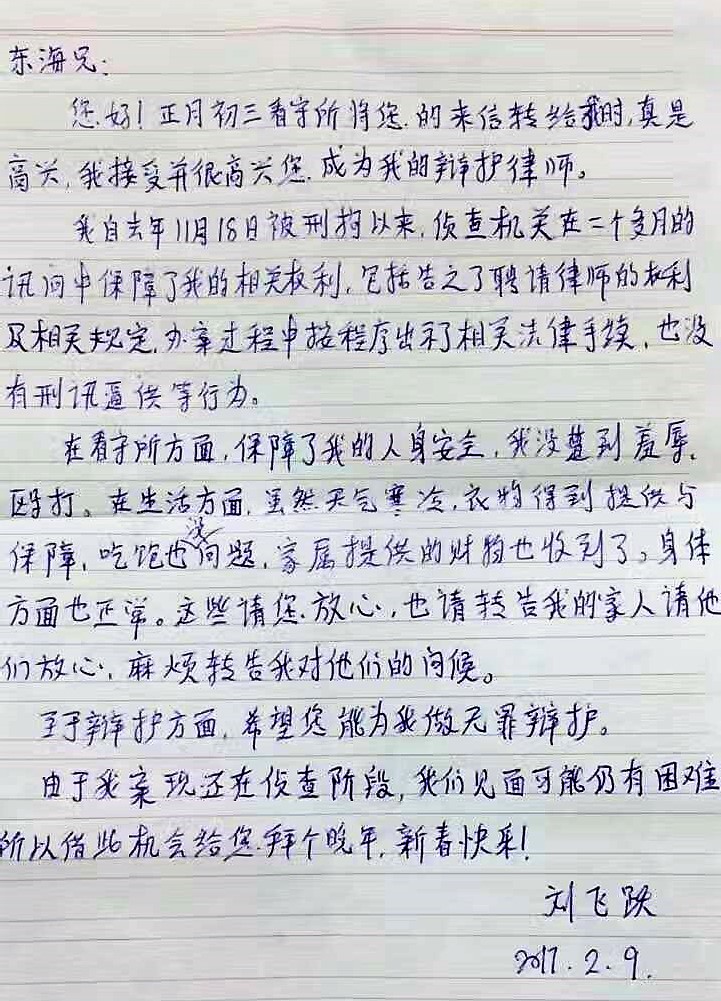 东海兄:
您好!正月初三看守所将您的来信转给我时,真是
高兴,我接受并很高兴您成为我的辩护律师。
我自去年11月18日被刑拘以来,侦查机关在二个多月的
讯问中保障了我的相关权利,包括告之了聘请律师的权利
及相关规定,办案过程中按程序出示了相关法律手续,也没
有刑讯逼供等行为。
在看守所方面,保障了我的人身安全,我没遭到羞辱、
殴打。在生活方面,虽然天气寒冷,衣物得到提供与
保障,吃饱也没问题,家属提供的财物也收到了。身体
方面也正常。这些请您放心,也请转告我的家人请他
们放心,麻烦转告我对他们的问候。
至于辩护方面,希望您能为我做无罪辩护。
由于我案现还在侦查阶段,我们见面可能仍有困难
所以借此机会给您拜个晚年,新春快乐!
刘飞跃
2017.2.9.